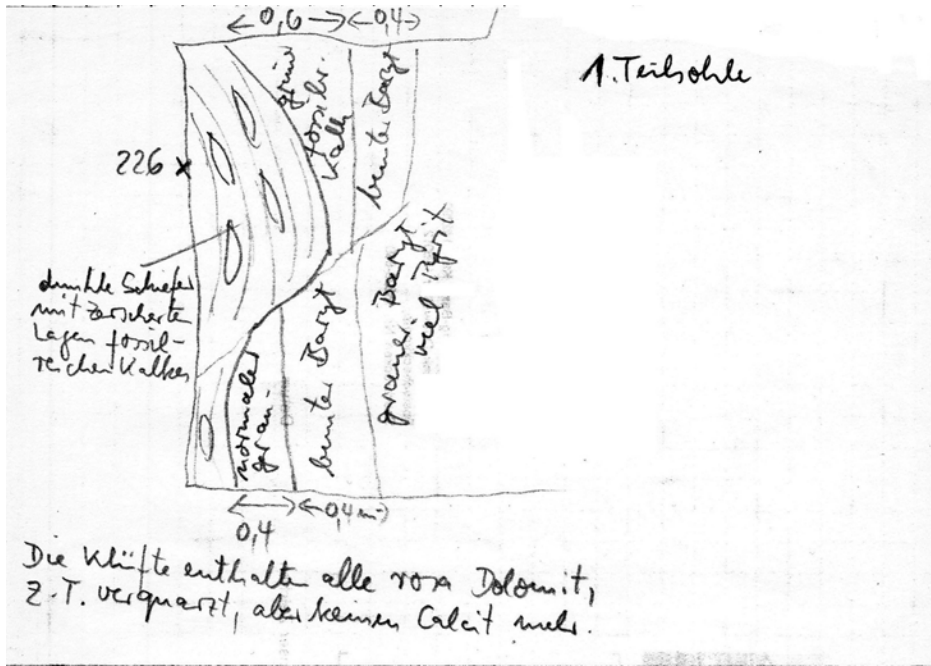 0,6 0,4
1. Teilsohle
grün
fossilr.
Kalk
bunter Baryt
226 x
dunkle Schiefer
mit zerscherten
Lagen fossil-
reichen Kalkes
normaler
grau
bunter Baryt
grauer Baryt
viel Pyrit
0,4 0,4 m
Die Klüfte enthalten alle rosa Dolomit,
z.T. verquarzt, aber keinen Calcit mehr.